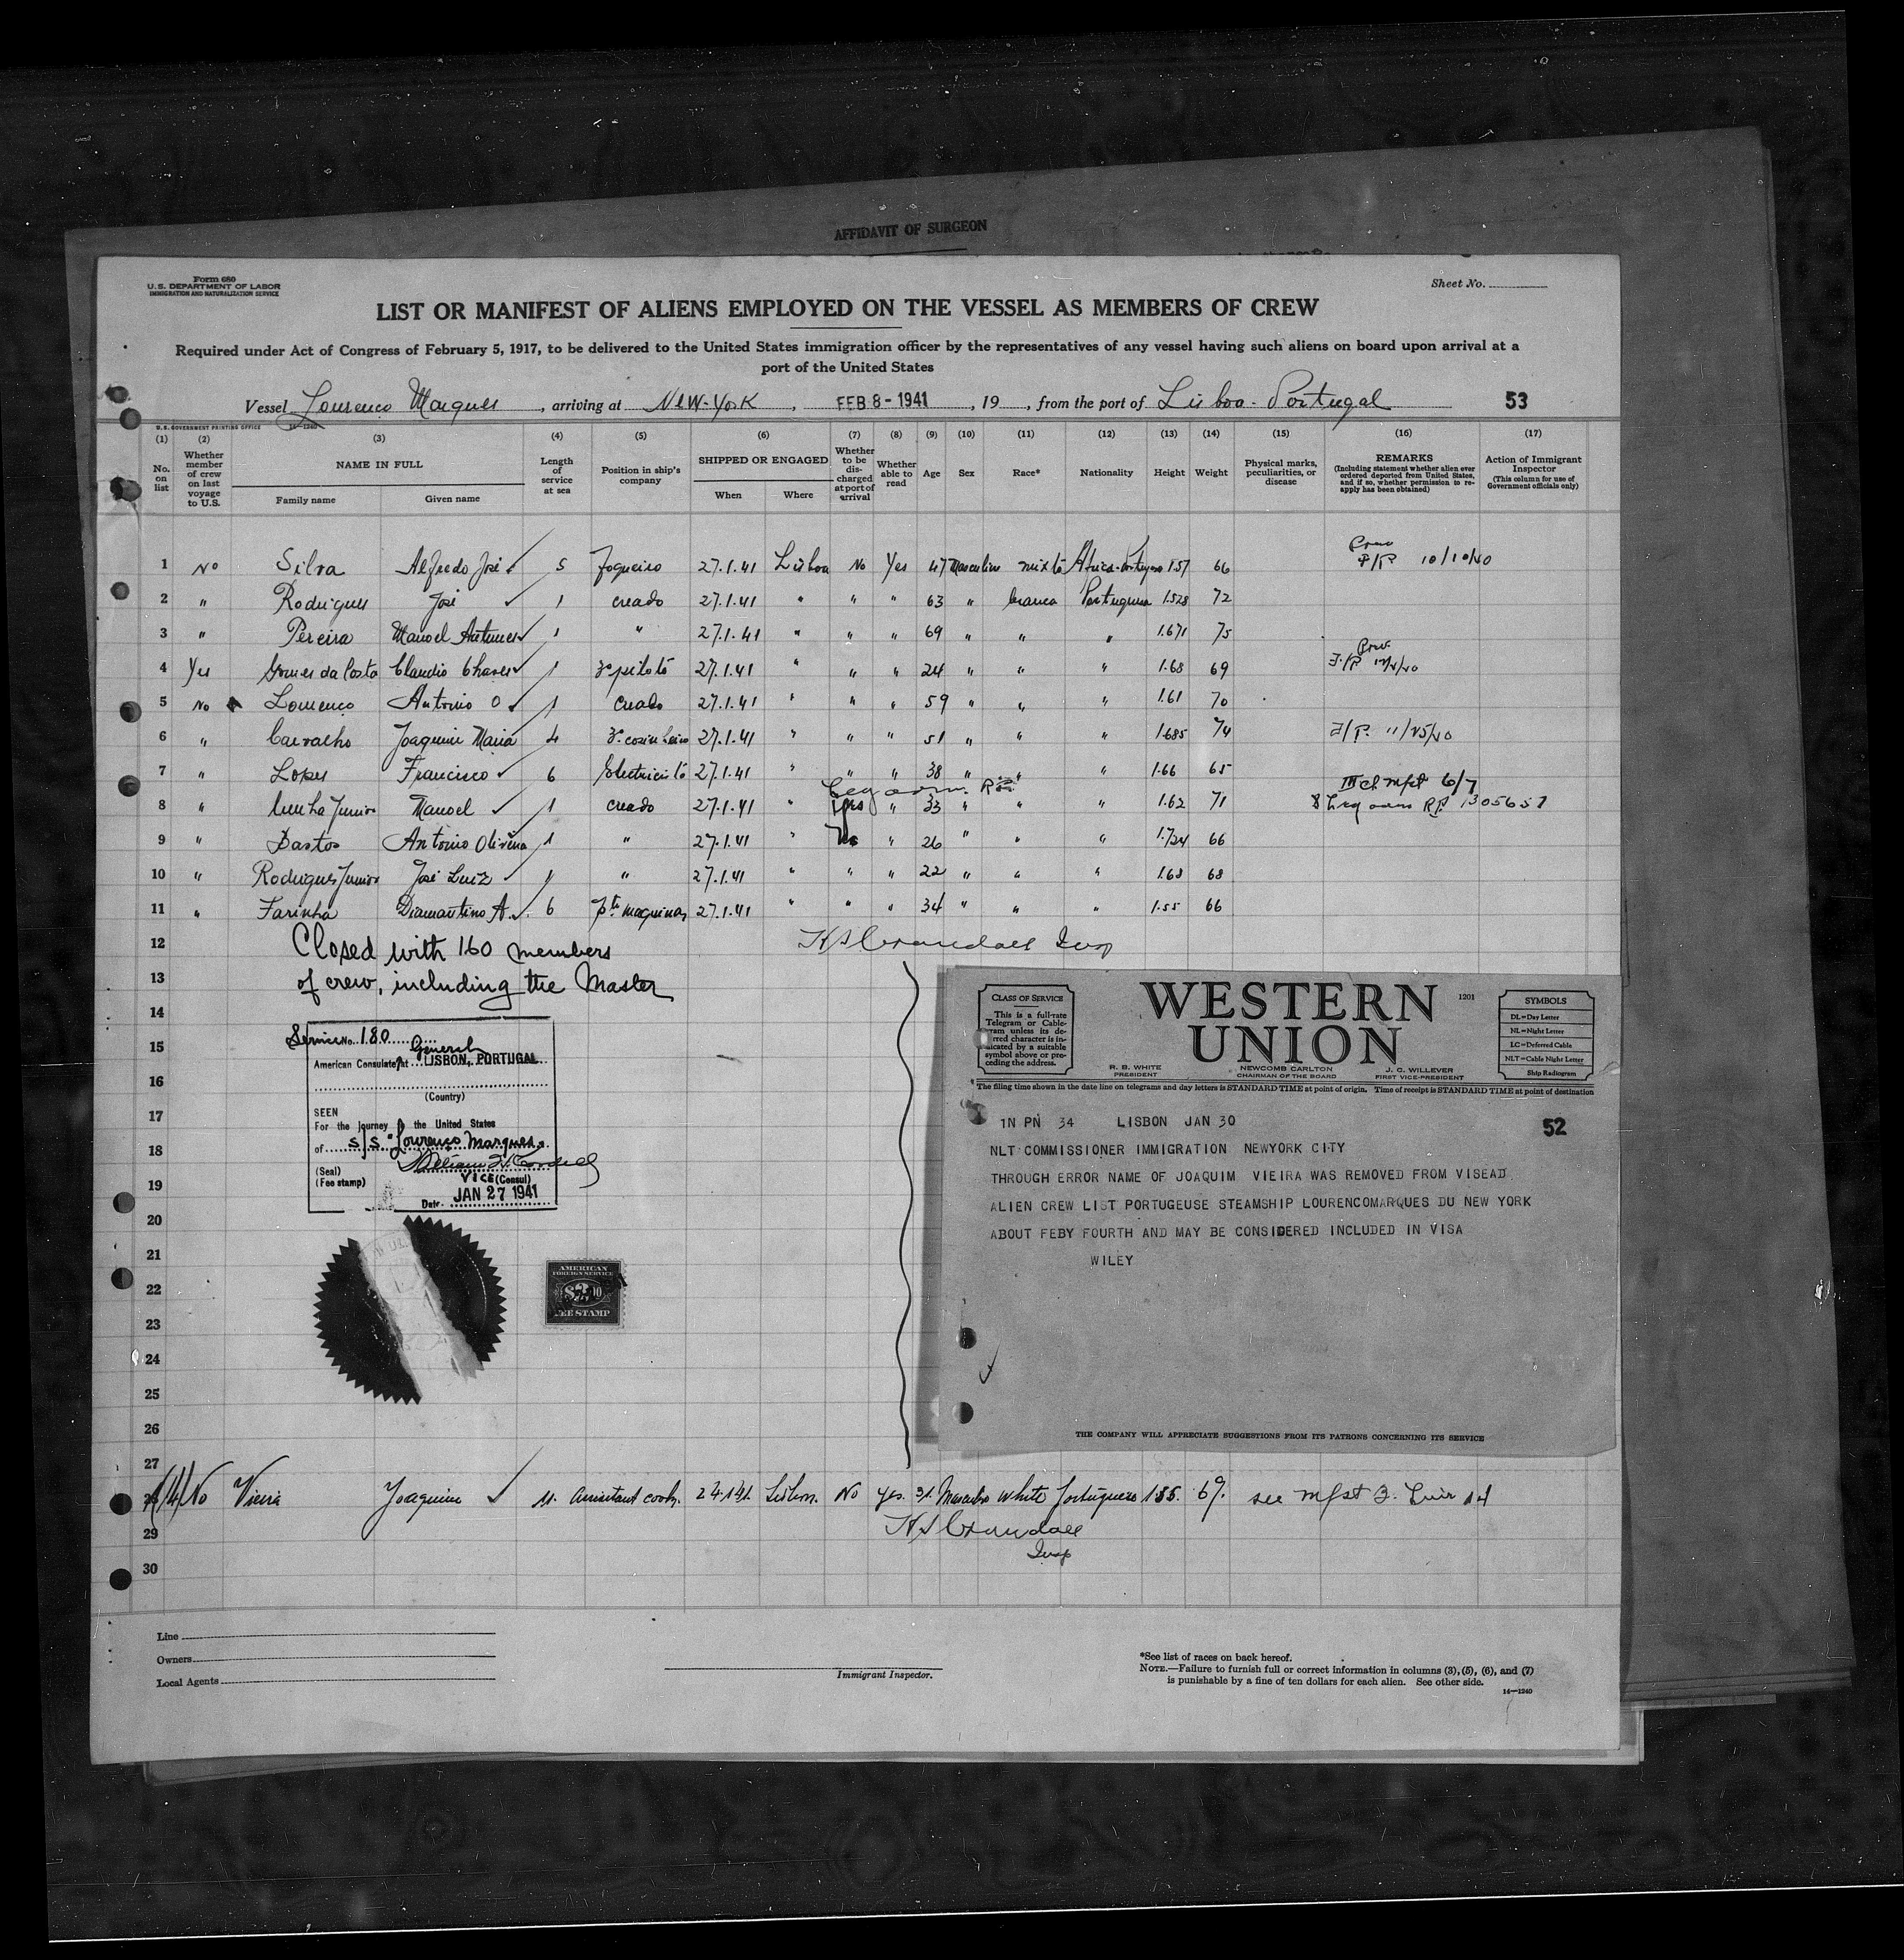 AFFIDAVIT OF SURGEON
Form 680
U.S. DEPARTMENT OF LABOR
IMMIGRATION AND NATURALIZATION SERVICE
Sheet No.
LIST OR MANIFEST OF ALIENS EMPLOYED ON THE VESSEL AS MEMBERS OF CREW
Required under Act of Congress of February 5, 1917, to be delivered to the United States immigration officer by the representatives of any vessel having such aliens on board upon arrival at a
port of the United States
Vessel Lourenco Marques, arriving at New-York, FEB 8-1941, 19, from the port of Lisboa-Portugal 53
U.S. GOVERNMENT PRINTING OFFICE 14-1240
(1) (2) (3) (4) (5) (6) (7) (8) (9) (10) (11) (12) (13) (14) (15) (16) (17)
No. on list
Whether member of crew on last voyage to U.S.
NAME IN FULL
Family name Given name
Length of service at sea
Position in ship's company
SHIPPED OR ENGAGED
When Where
Whether to be discharged at port of arrival
Whether able to read
Age Sex Race* Nationality Height Weight
Physical marks, peculiarities, or disease
REMARKS
(Including statement whether alien ever ordered deported from United States, and if so, whether permission to reapply has been obtained)
Action of Immigrant Inspector
(This column for use of Government officials only)
1 No Silva Alfredo José 5 fogueiro 27.1.41 Lisboa No Yes 47 Masculino mixta Africa-Portuguesa 1.57 66 10/10/40
2 " Rodrigues José 1 creado 27.1.41 " " " 63 " branca Portuguesa 1.528 72
3 " Pereira Manoel Antunes 1 " 27.1.41 " " " 69 " " " 1.671 75
4 Yes Gomes da Costa Claudio Chaves 1 3º piloto 27.1.41 " " " 24 " " " 1.68 69
5 No Lourenço Antonio O 1 creado 27.1.41 " " " 59 " " " 1.61 70
6 " Carvalho Joaquim Maria 4 3º cosinheiro 27.1.41 " " " 51 " " " 1.685 74 11/25/40
7 " Lopes Francisco 6 Electricista 27.1.41 " " " 38 " " " 1.66 65
8 " Cunha Junior Manoel 1 creado 27.1.41 " Yes " 33 " " " 1.62 71 1305657
9 " Bastos Antonio Oliveira 1 " 27.1.41 " No " 26 " " " 1.724 66
10 " Rodrigues Junior José Luiz 1 " 27.1.41 " " " 22 " " " 1.68 68
11 " Farinha Diamantino A. 6 maquinas 27.1.41 " " " 34 " " " 1.55 66
12 Closed with 160 members H S Crandall Insp
13 of crew, including the Master
14
15
16
17
18
19
20
21
22
23
24
25
26
27
Service No. 180
General
American Consulate at LISBON, PORTUGAL
(Country)
SEEN
For the journey to the United States
of S/S "Lourenço Marques"
(Seal)
(Fee stamp)
VICE (Consul)
Date JAN 27 1941
AMERICAN
FOREIGN SERVICE
FEE STAMP
CLASS OF SERVICE
This is a full-rate
Telegram or Cable-
gram unless its de-
ferred character is in-
dicated by a suitable
symbol above or pre-
ceding the address.
WESTERN
UNION
1201
SYMBOLS
DL=Day Letter
NL=Night Letter
LC=Deferred Cable
NLT=Cable Night Letter
Ship Radiogram
R. B. WHITE
PRESIDENT
NEWCOMB CARLTON
CHAIRMAN OF THE BOARD
J. C. WILLEVER
FIRST VICE-PRESIDENT
The filing time shown in the date line on telegrams and day letters is STANDARD TIME at point of origin. Time of receipt is STANDARD TIME at point of destination
1N PN 34 LISBON JAN 30 52
NLT COMMISSIONER IMMIGRATION NEWYORK CITY
THROUGH ERROR NAME OF JOAQUIM VIEIRA WAS REMOVED FROM VISEAD
ALIEN CREW LIST PORTUGEUSE STEAMSHIP LOURENCOMARQUES DU NEW YORK
ABOUT FEBY FOURTH AND MAY BE CONSIDERED INCLUDED IN VISA
WILEY
THE COMPANY WILL APPRECIATE SUGGESTIONS FROM ITS PATRONS CONCERNING ITS SERVICE
No Vieira Joaquim assistant cook Lisbon No yes 31 Masculino White Portuguese 155 67 see mfst
29 H S Crandall
Insp
30
Line
Owners
Local Agents
Immigrant Inspector.
*See list of races on back hereof.
NOTE.—Failure to furnish full or correct information in columns (3), (5), (6), and (7)
is punishable by a fine of ten dollars for each alien. See other side.
14—1240